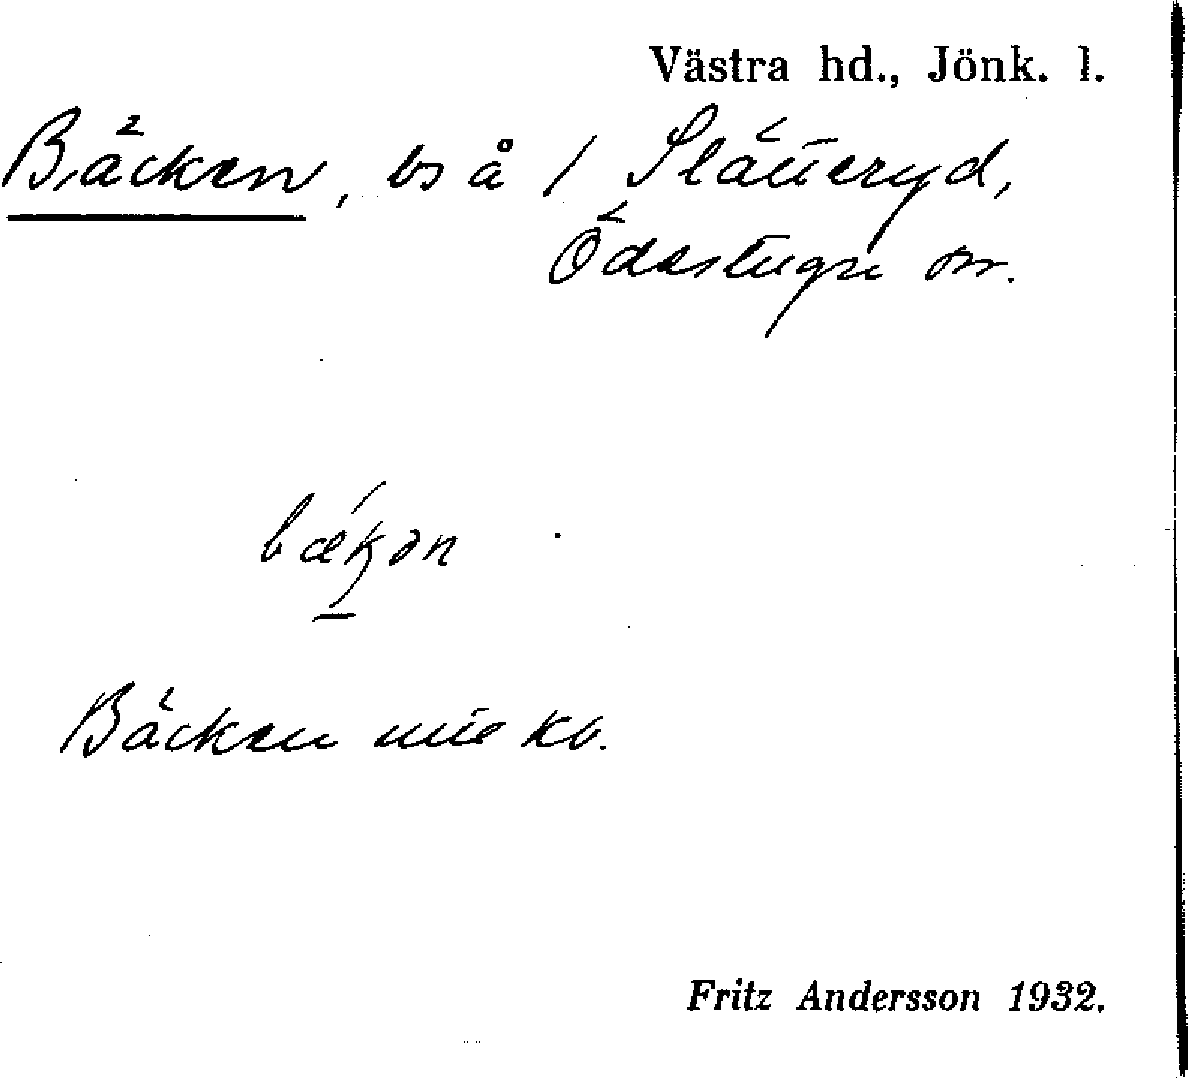 Västra hd., Jönk. l.
Bäcken, bs å 1 Slätteryd,
Ödestugu sn.
bækən
Bäcken
Fritz Andersson 1932.